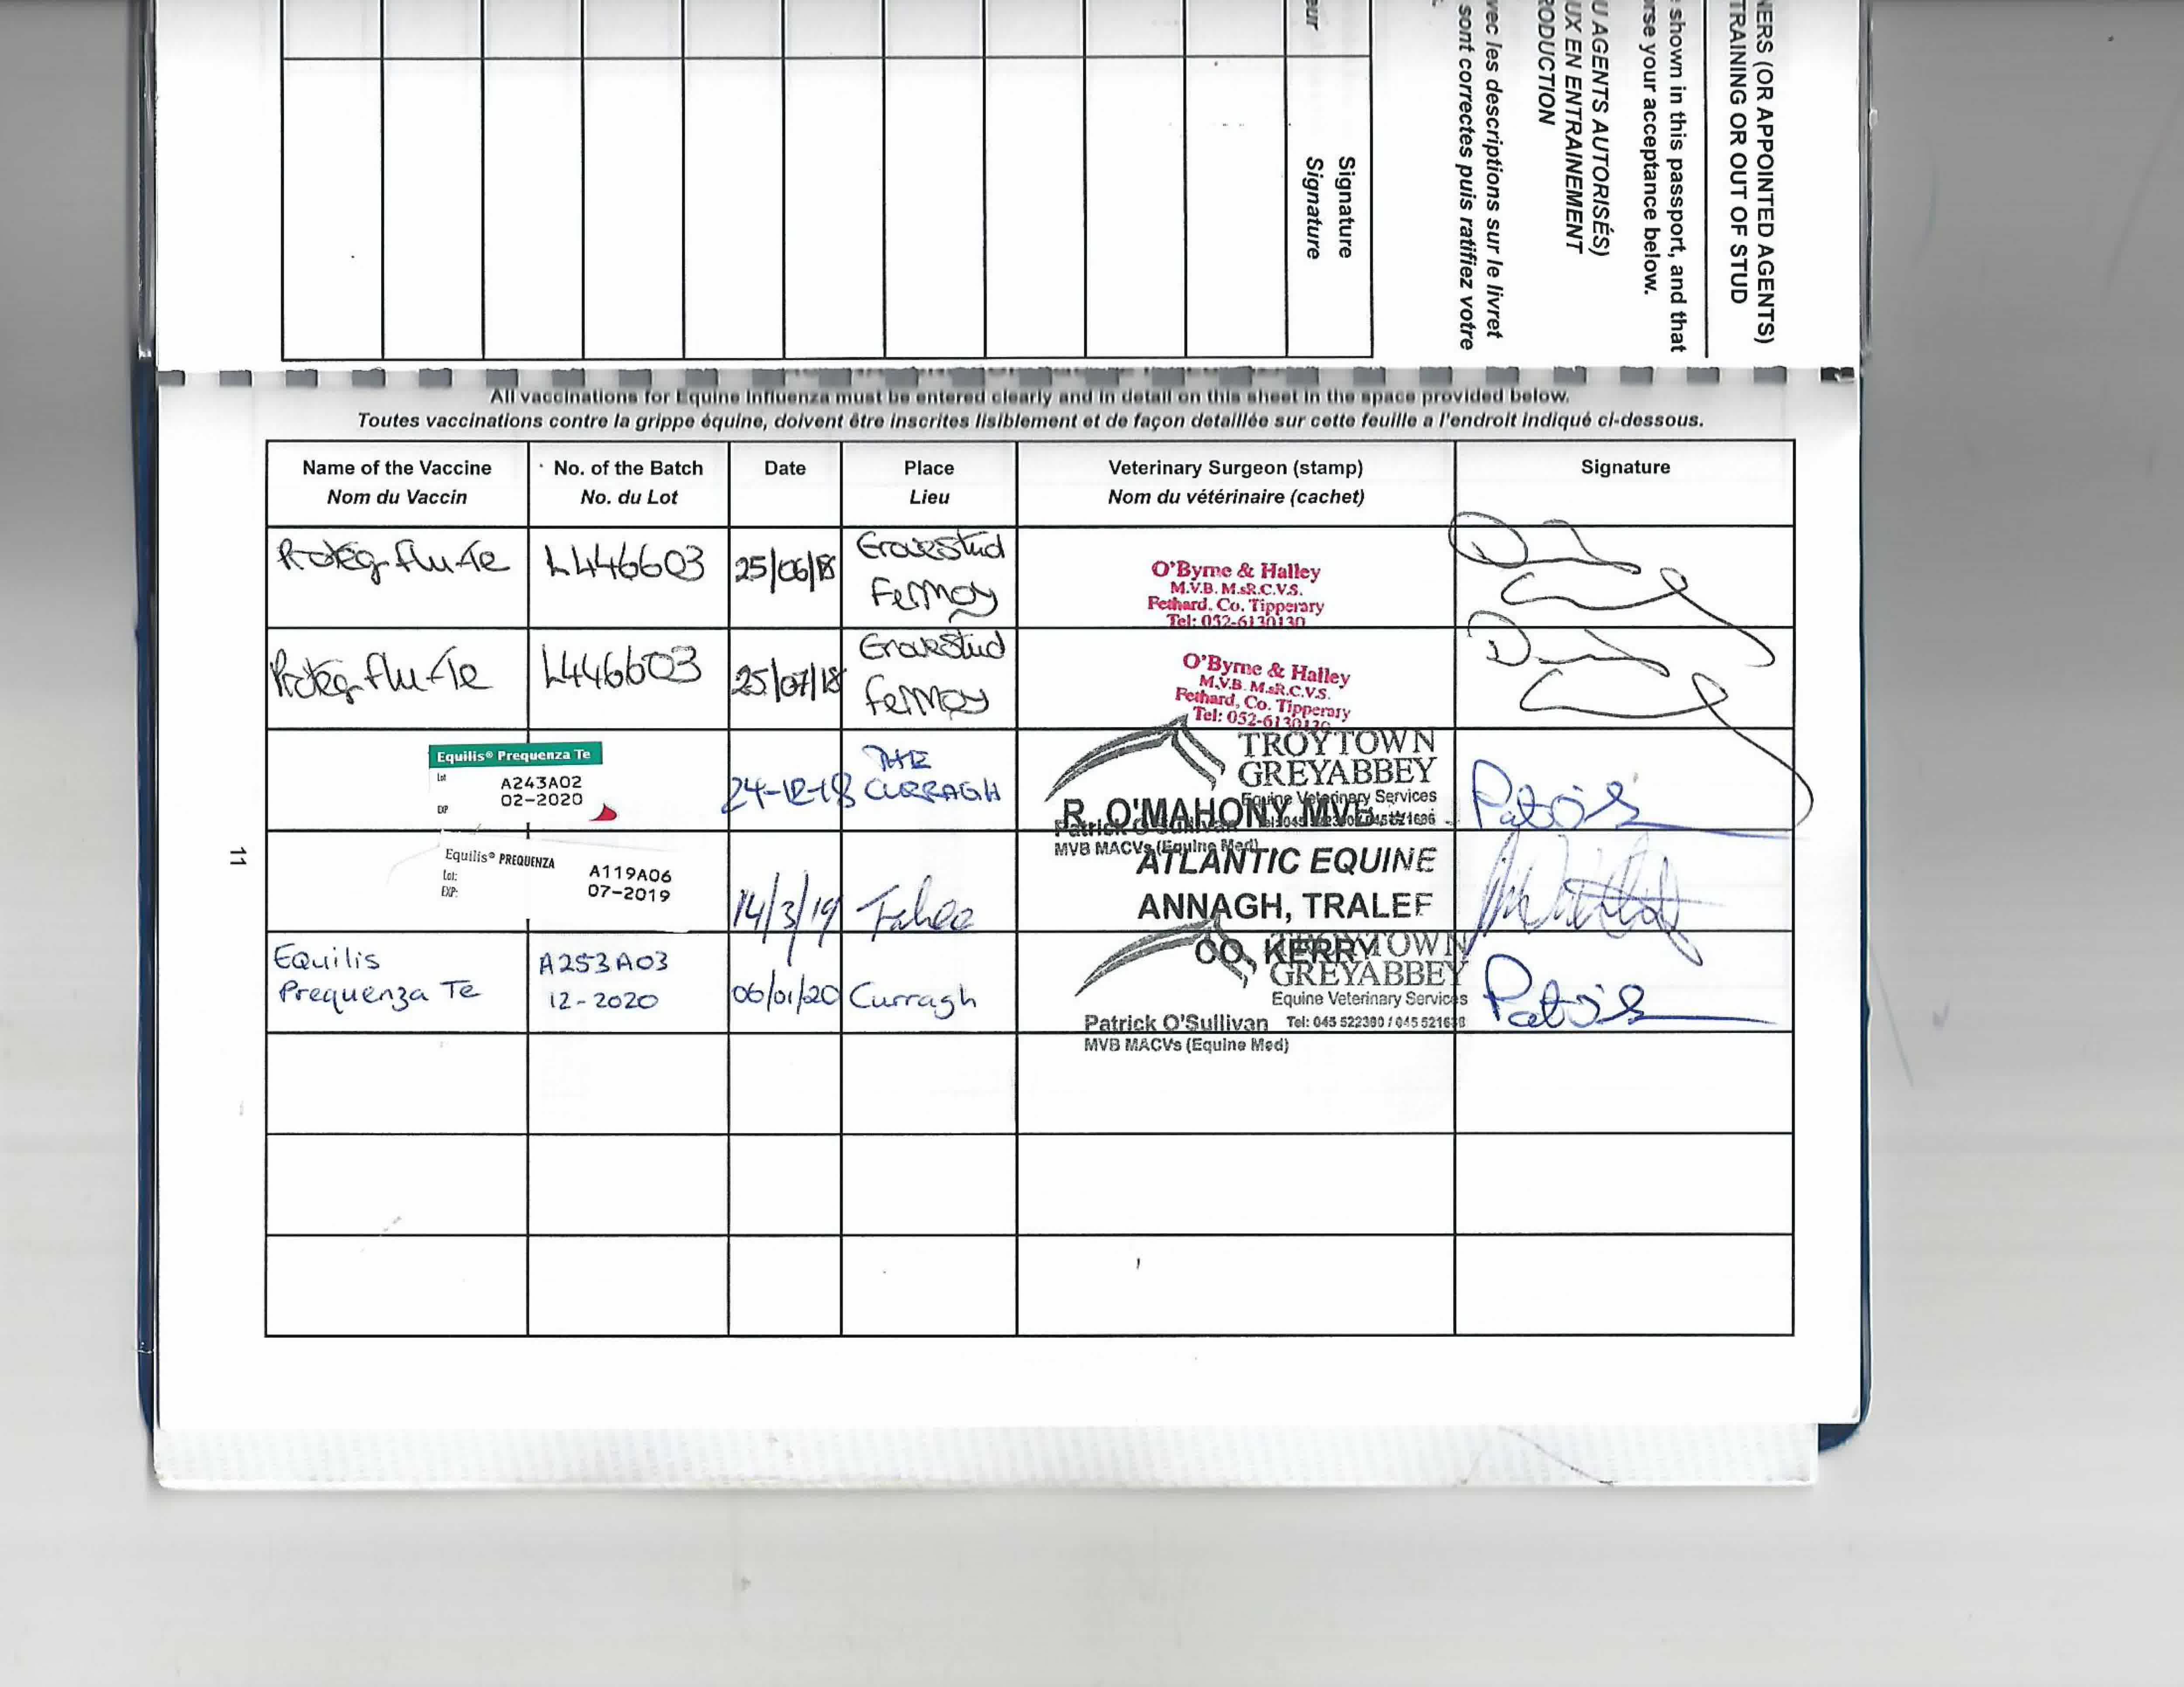 NERS (OR APPOINTED AGENTS)
TRAINING OR OUT OF STUD
shown in this passport, and that
rse your acceptance below.
U AGENTS AUTORISÉS)
UX EN ENTRAINEMENT
RODUCTION
vec les descriptions sur le livret
sont correctes puis ratifiez votre
Signature
eur Signature
All vaccinations for Equine Influenza must be entered clearly and in detail on this sheet in the space provided below.
Toutes vaccinations contre la grippe équine, doivent être inscrites lisiblement et de façon detaillée sur cette feuille a l'endroit indiqué ci-dessous.
Name of the Vaccine No. of the Batch Date Place Veterinary Surgeon (stamp) Signature
Nom du Vaccin No. du Lot Lieu Nom du vétérinaire (cachet)
Proteq-flu-Te L446603 25/06/18 Grovestud
Fermoy
O'Byrne & Halley
M.V.B. M.sR.C.V.S.
Fethard. Co. Tipperary
Tel: 052-6130130
Proteq-flu-Te L446603 25/07/18 Grovestud
Fermoy
O'Byrne & Halley
M.V.B. M.sR.C.V.S.
Fethard, Co. Tipperary
Tel: 052-6130130
Equilis® Prequenza Te
Lot A243A02
EXP 02-2020
24-12-18 THE
CURRAGH
TROYTOWN
GREYABBEY
Equine Veterinary Services
R. O'MAHONY MVB
Patrick O'Sullivan
MVB MACVs (Equine Med)
11
Equilis® PREQUENZA
Lot: A119A06
EXP: 07-2019
14/3/19
ATLANTIC EQUINE
ANNAGH, TRALEE
CO. KERRY
Equilis
Prequenza Te
A253A03
12-2020
06/01/20 Curragh
TROYTOWN
GREYABBEY
Equine Veterinary Services
Patrick O'Sullivan Tel: 045 522380 / 045 521686
MVB MACVs (Equine Med)